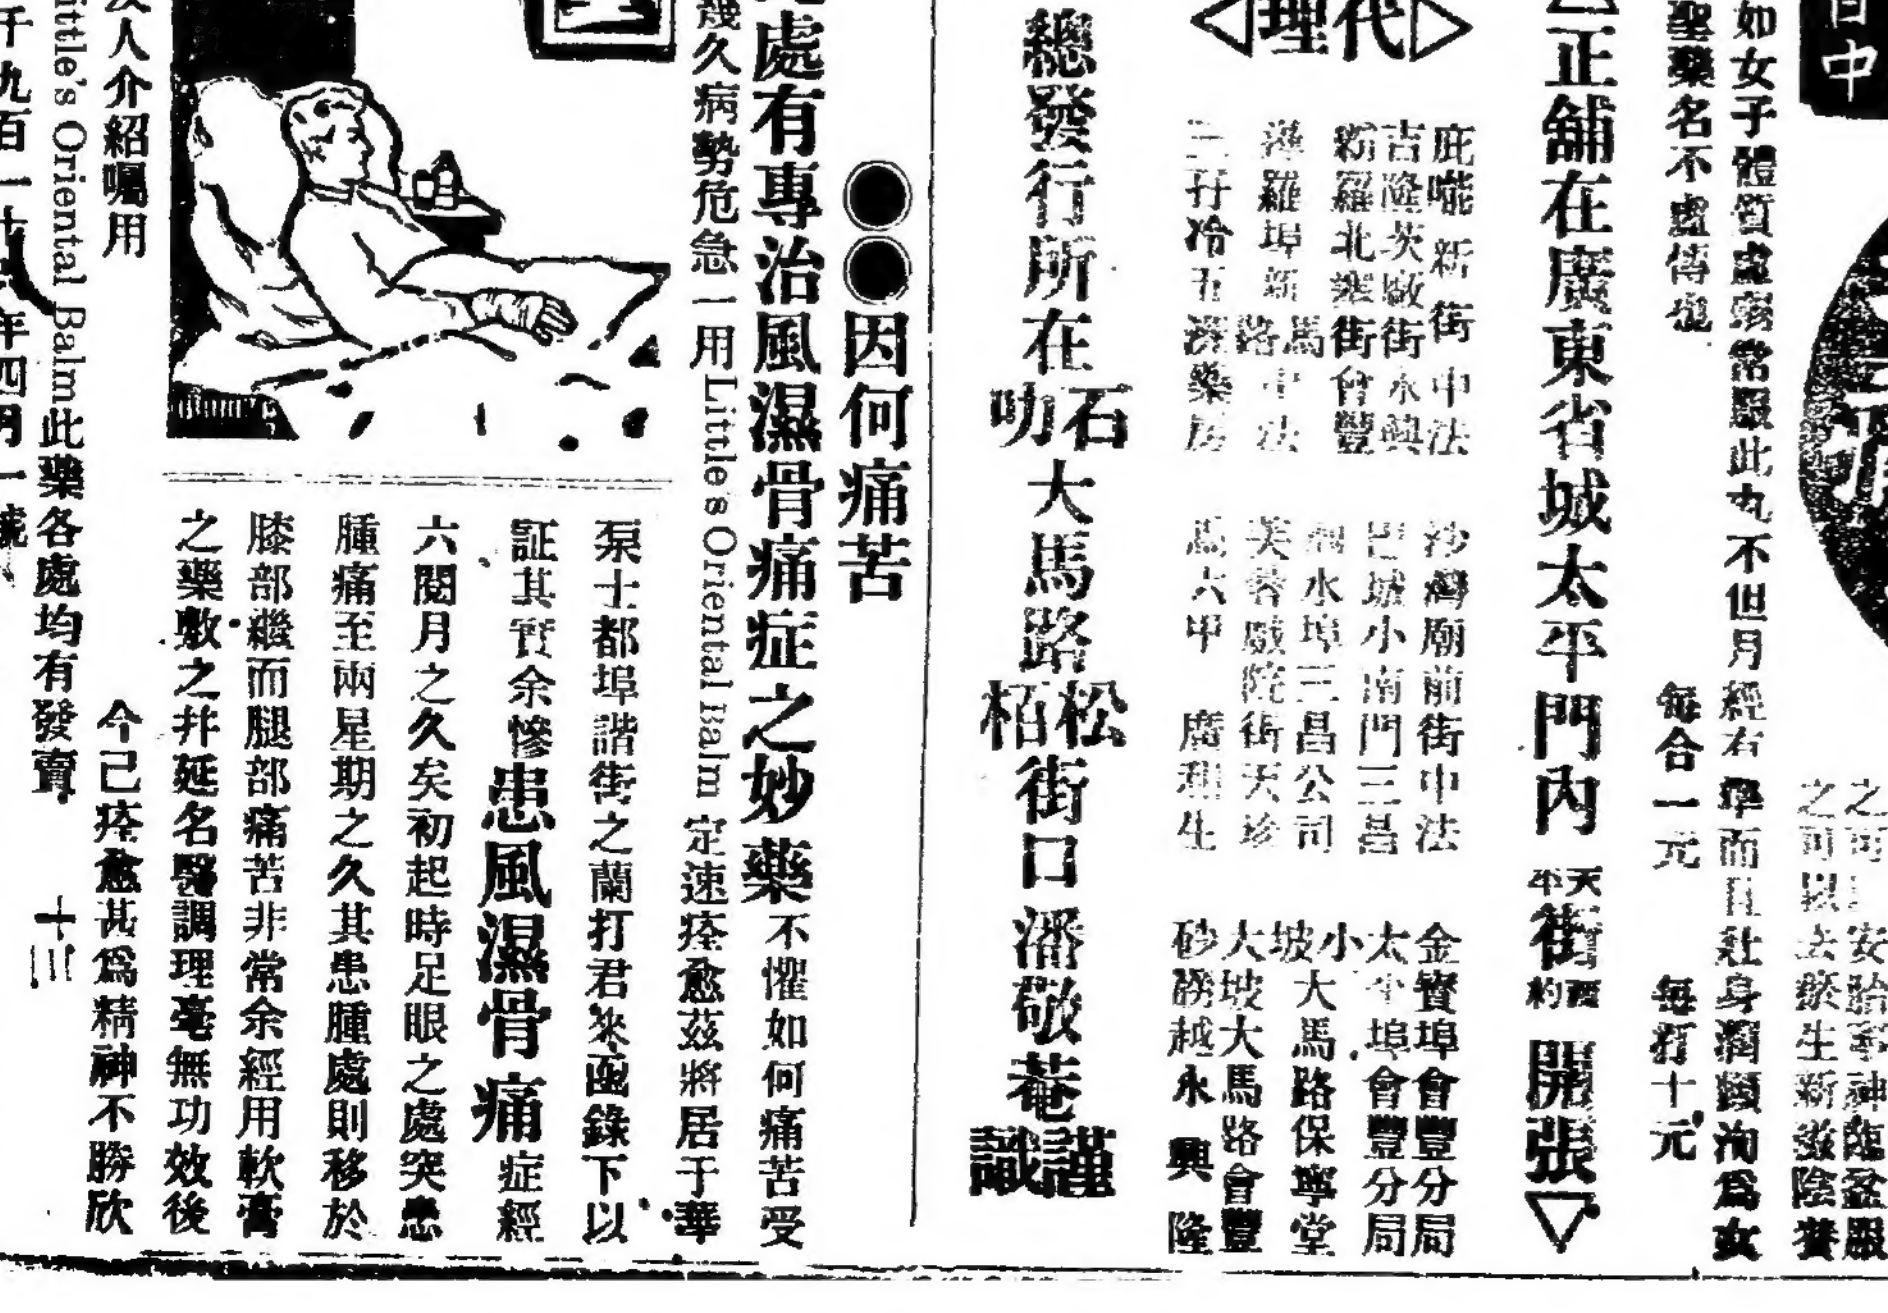 日中
之可 安胎寧神臨盆服
之可以去瘀生新滋陰養
如女子體質虛弱常服此丸不但月經右準而且壯身潤顏洵爲女
聖藥名不虛傳也
每合一元
每打十元
正舖在廣東省城太平門內天平街約開張
代理
庇嚨新街中法
吉隆茨廠街永興
新羅北塞街會豐
埠羅埠新馬路中法
三孖冷五洲藥房
沙灣廟前街中法
巴城小南門三昌
水埠三昌公司
芙蓉戲院街天珍
馬六甲 廣利生
金寶埠會豐分局
太平埠會豐分局
小坡大馬路保寧堂
大坡大馬路會豐
砂朥越永興隆
總發行所在石叻大馬路松栢街口潘敬菴謹識
因何痛苦
處有專治風濕骨痛症之妙藥不懼如何痛苦受
幾久病勢危急一用Little's Oriental Balm定速痊愈茲將居于華
泵士都埠諧街之蘭打君來函錄下以
証其實余慘患風濕骨痛症經
六閱月之久矣初起時足眼之處突患
腫痛至兩星期之久其患腫處則移於
膝部繼而腿部痛苦非常余經用軟膏
之藥敷之并延名醫調理毫無功效後
友人介紹囑用
今已痊愈甚爲精神不勝欣
ittle's Oriental Balm此藥各處均有發賣
千九百一十 年四月一號